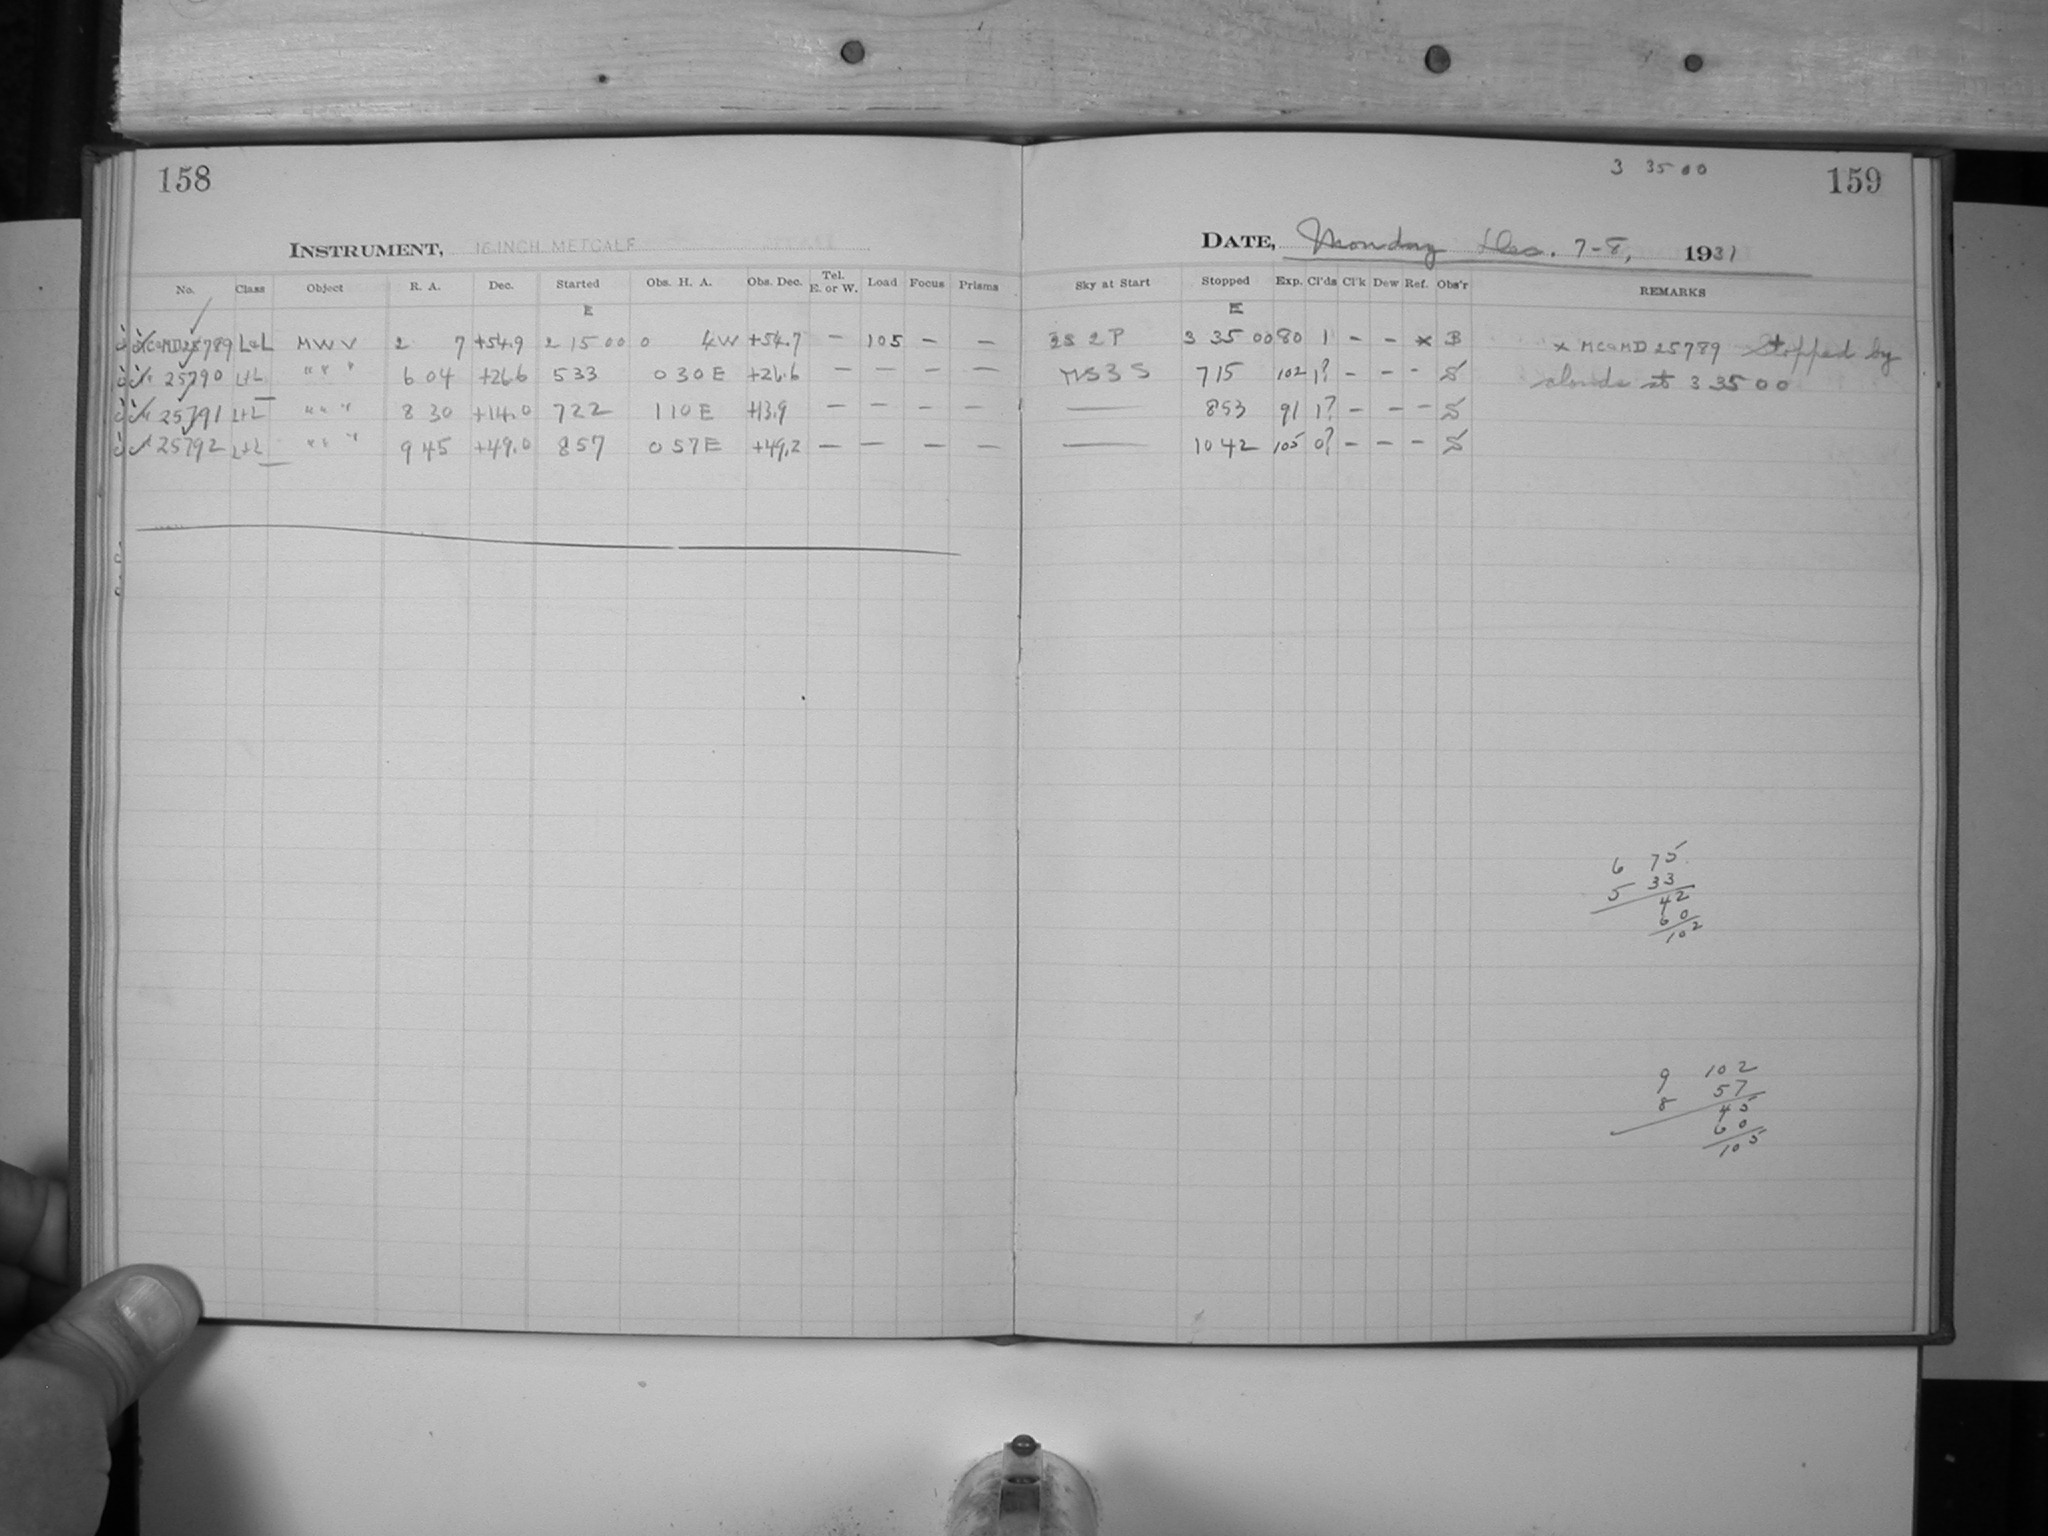 158
INSTRUMENT, 16 INCH METCALF
No. Class Object R. A. Dec. Started Obs. H. A. Obs. Dec. Tel. E. or W. Load Focus Prisms
E
MCaMD 25789 L&L MWV 2 7 +54.9 2 15 00 0 4W +54.7 — 105 — —
" 25790 L+L " " " 6 04 +26.6 5 33 0 30 E +26.6 — — — —
" 25791 L+L " " " 8 30 +14.0 7 22 1 10 E +13.9 — — — —
" 25792 L+L " " " 9 45 +49.0 8 57 0 57 E +49.2 — — — —
3 35 00
159
DATE, Monday Dec. 7-8, 1931
Sky at Start Stopped Exp. Cl'ds Cl'k Dew Ref. Obs'r REMARKS
E
3S 2P 3 35 00 80 1 - - x B x MCaMD 25789 Stopped by
MS3S 7 15 102 1? - - - S clouds at 3 35 00
— 8 53 91 1? - - - S
— 10 42 105 0? - - - S
6 75
5 33
42
60
102
9 102
8 57
45
60
105